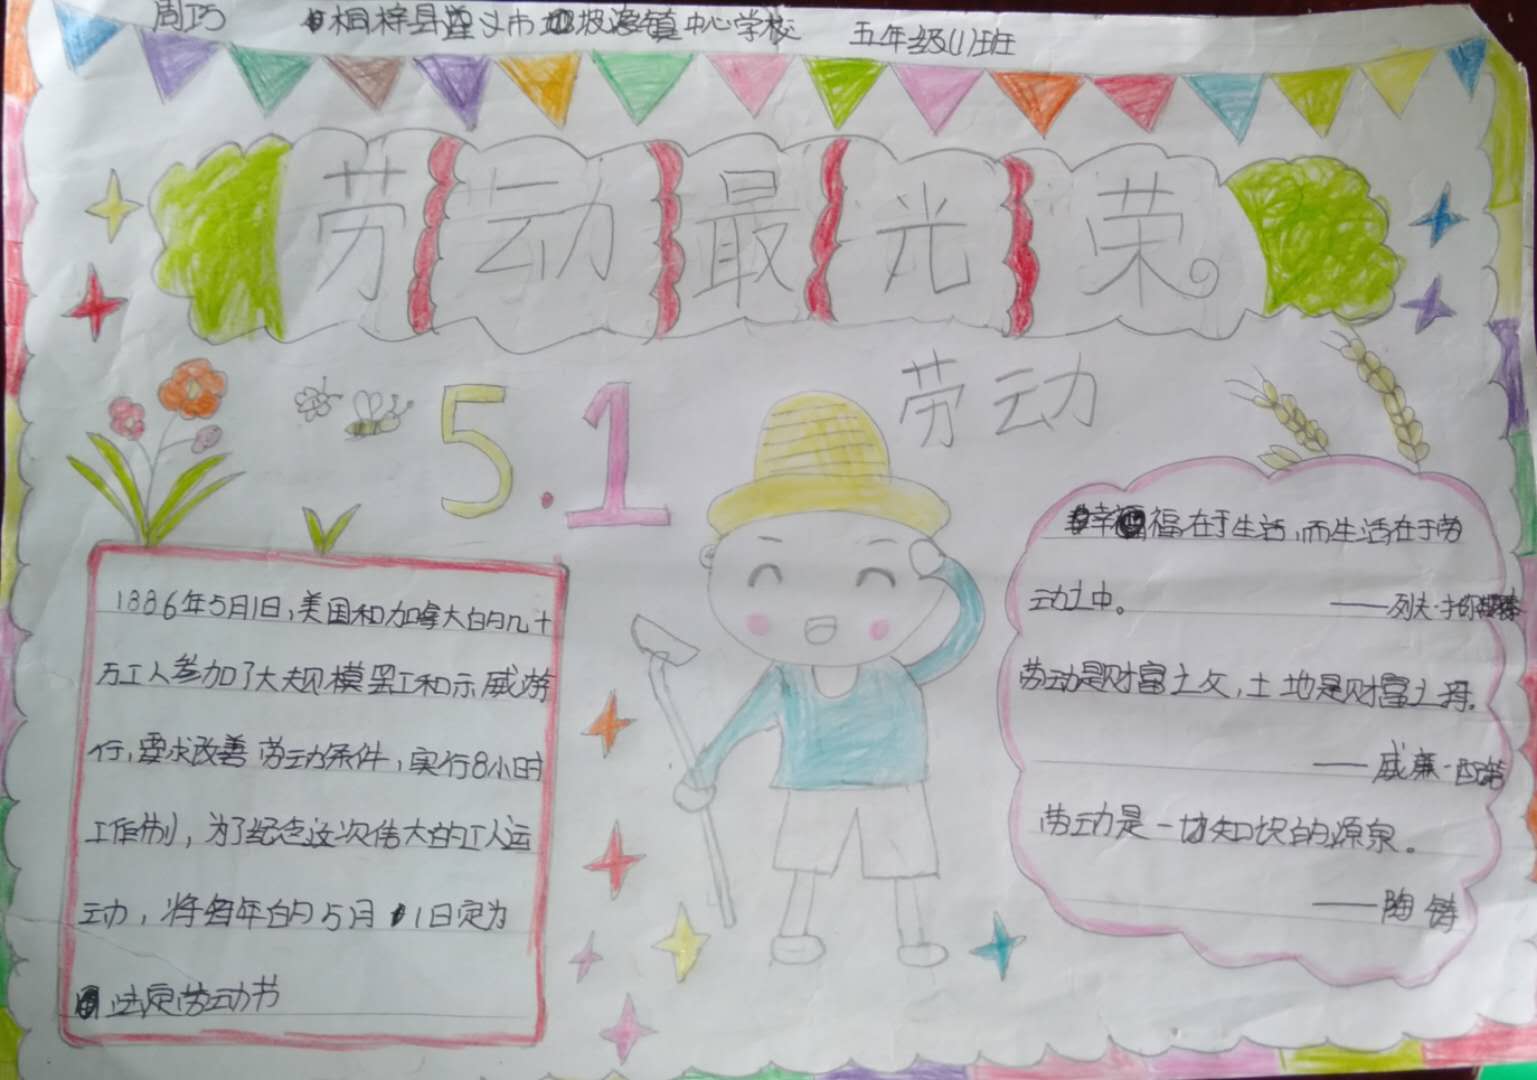 周巧 桐梓县遵义市坡渡镇中心学校 五年级(1)班
劳动最光荣
5.1
劳动
1886年5月1日,美国和加拿大的几十
万工人参加了大规模罢工和示威游
行,要求改善劳动条件,实行8小时
工作制,为了纪念这次伟大的工人运
动,将每年的5月1日定为
法定劳动节
幸福在于生活,而生活在于劳
动之中。
——列夫·
劳动是财富之父,土地是财富之母。
——威廉·配第
劳动是一切知识的源泉。
——陶铸